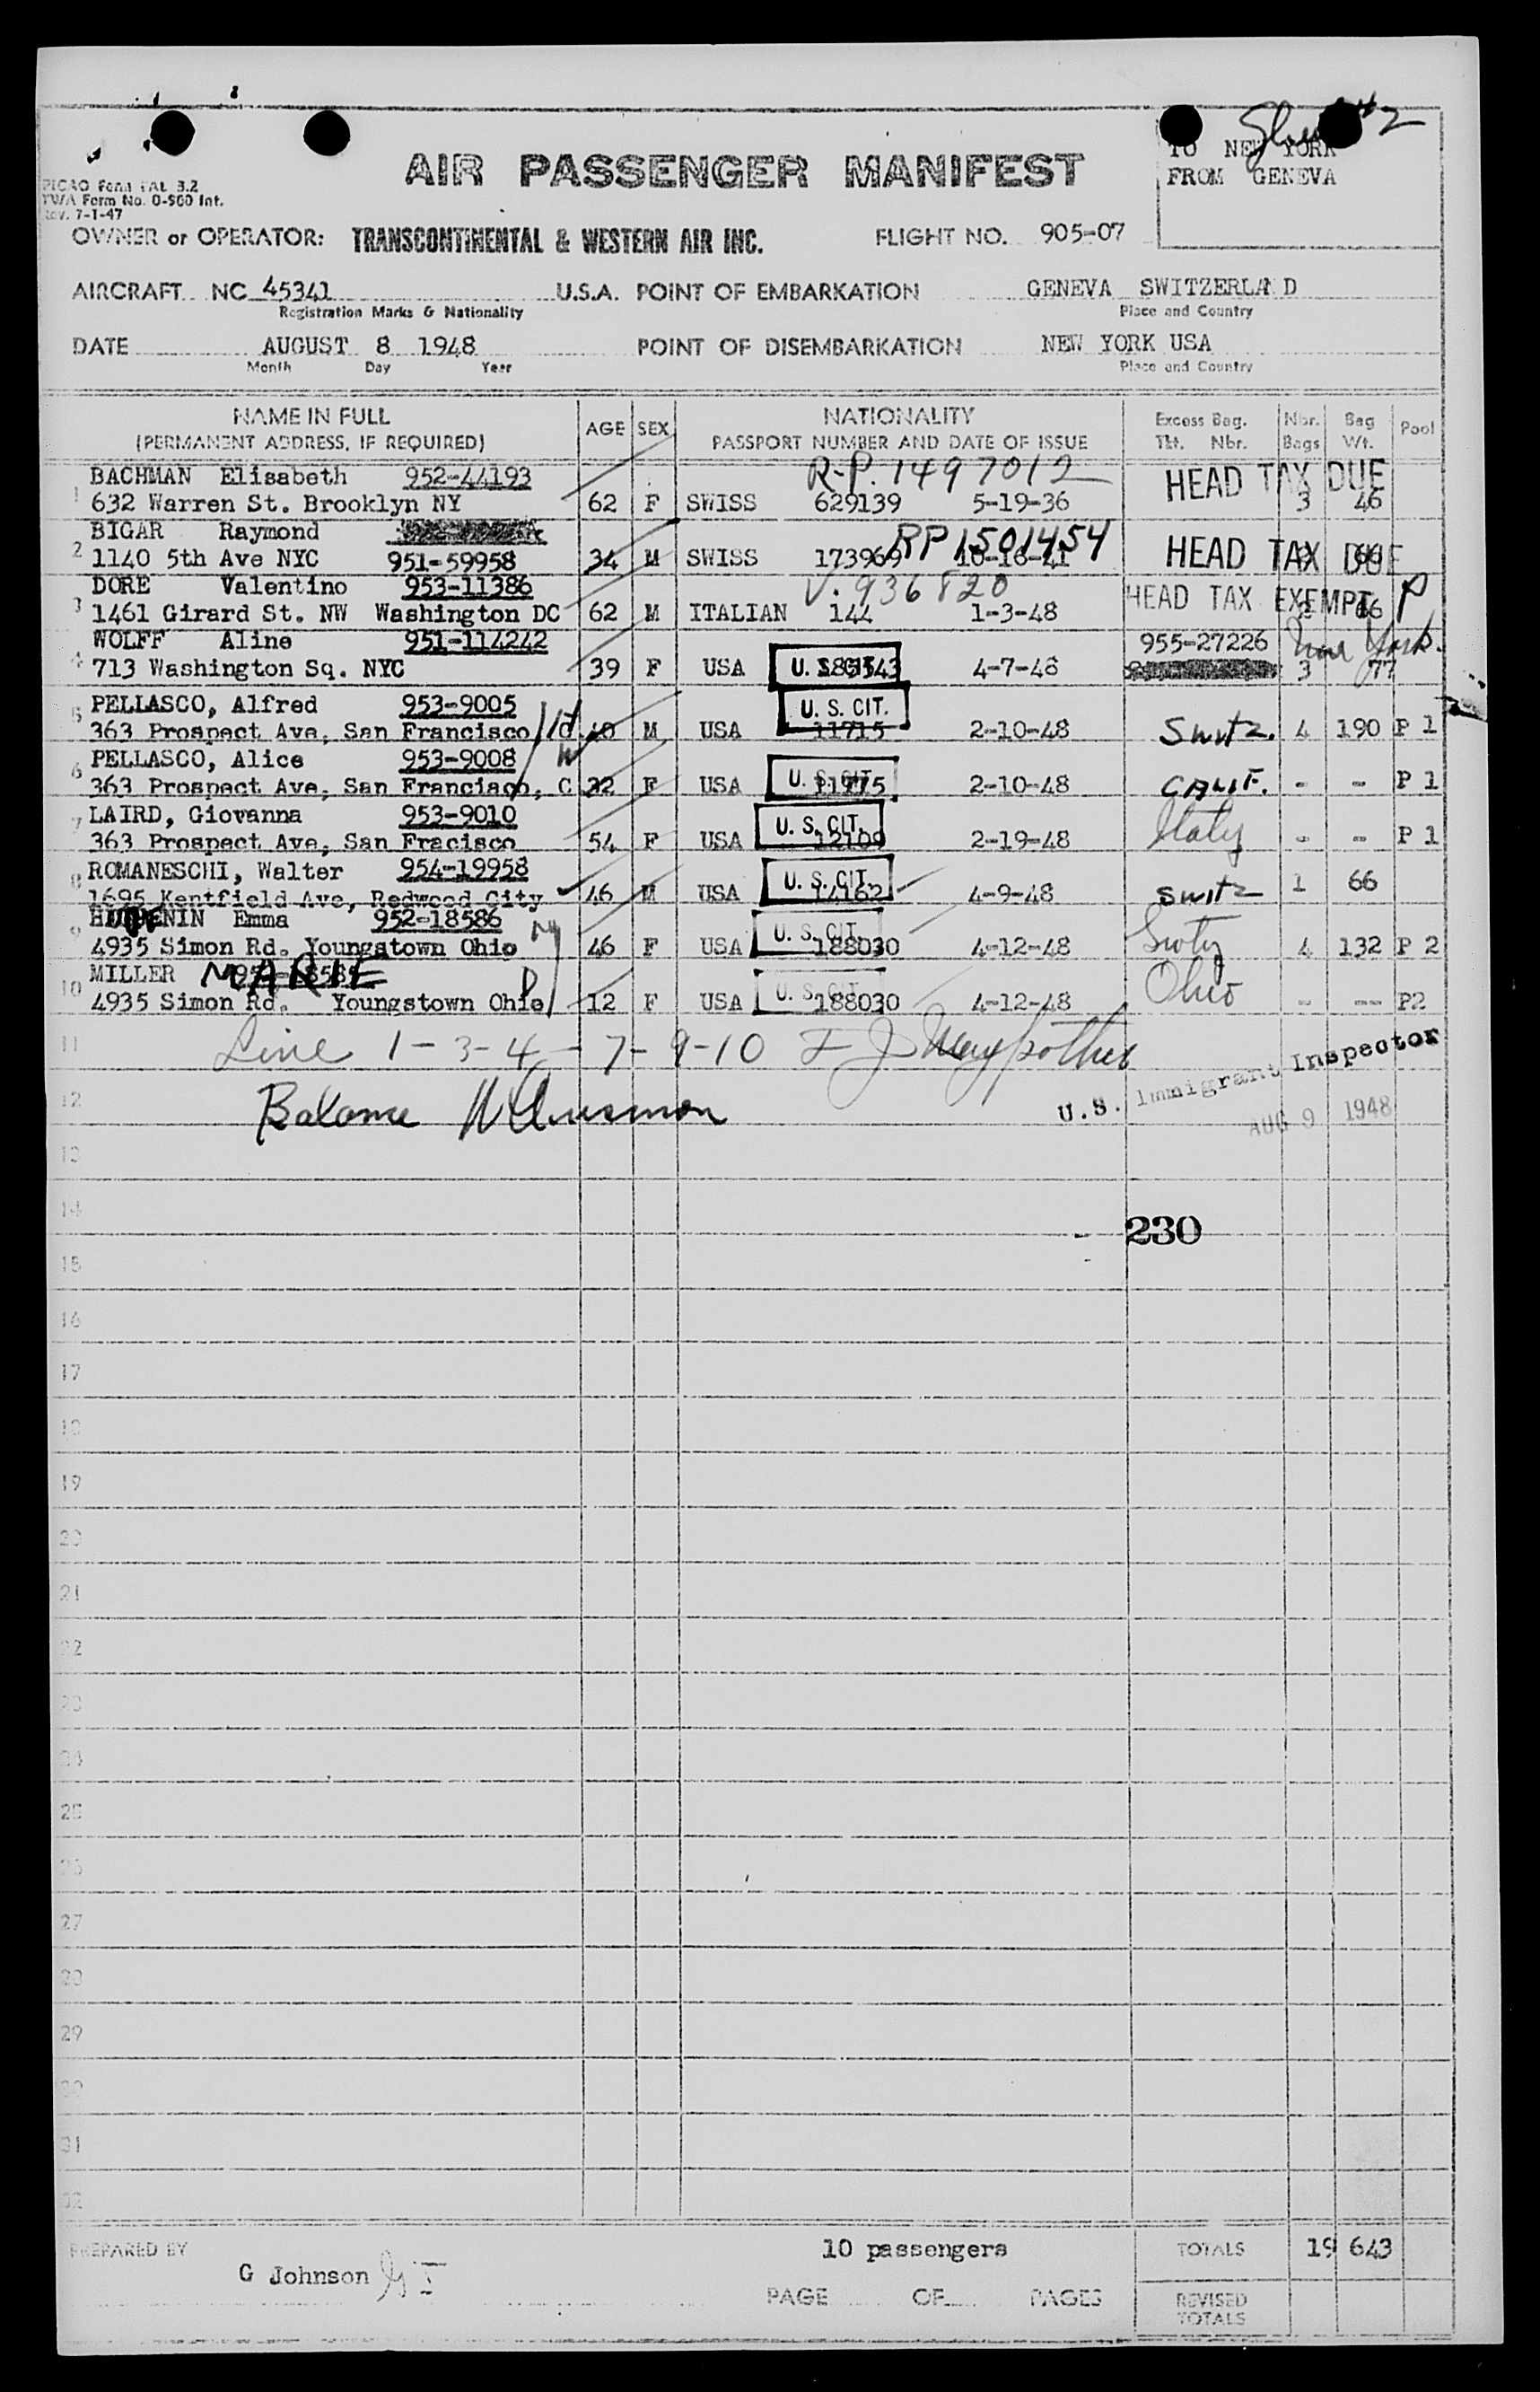 Sheet #2
TO NEW YORK
FROM GENEVA
AIR PASSENGER MANIFEST
PICAO Form FAL 3.2
TWA Form No. O-560 Int.
Rev. 7-1-47
OWNER or OPERATOR: TRANSCONTINENTAL & WESTERN AIR INC. FLIGHT NO. 905-07
AIRCRAFT NC 45341 U.S.A. POINT OF EMBARKATION GENEVA SWITZERLAND
Registration Marks & Nationality Place and Country
DATE AUGUST 8 1948 POINT OF DISEMBARKATION NEW YORK USA
Month Day Year Place and Country
NAME IN FULL AGE SEX NATIONALITY Excess Bag. Nbr. Bag Pool
(PERMANENT ADDRESS, IF REQUIRED) PASSPORT NUMBER AND DATE OF ISSUE Tkt. Nbr. Bags Wt.
BACHMAN Elisabeth 952-44193 R-P. 1497012 HEAD TAX DUE
1 632 Warren St. Brooklyn NY 62 F SWISS 629139 5-19-36 3 46
BIGAR Raymond RP 1501454
2 1140 5th Ave NYC 951-59958 34 M SWISS 173969 10-16-41 HEAD TAX DUE
DORE Valentino 953-11386 V. 936820 HEAD TAX EXEMPT P
3 1461 Girard St. NW Washington DC 62 M ITALIAN 144 1-3-48 66
WOLFF Aline 951-114242 955-27226 New York.
4 713 Washington Sq. NYC 39 F USA U. S. CIT. 4-7-48 3 77
PELLASCO, Alfred 953-9005 U. S. CIT.
5 363 Prospect Ave, San Francisco 40 M USA 11715 2-10-48 Switz. 4 190 P 1
PELLASCO, Alice 953-9008 W U. S. CIT.
6 363 Prospect Ave, San Francisco, C 32 F USA 2-10-48 CALIF. - - P 1
LAIRD, Giovanna 953-9010 U. S. CIT.
7 363 Prospect Ave, San Fracisco 54 F USA 12109 2-19-48 Italy - - P 1
ROMANESCHI, Walter 954-19958 U. S. CIT.
8 1695 Kentfield Ave, Redwood City 46 M USA 14162 4-9-48 Switz 1 66
HUGENIN Emma 952-18586 M U. S. CIT.
9 4935 Simon Rd. Youngstown Ohio 46 F USA 188030 4-12-48 Switz 4 132 P 2
MILLER MARIE D U. S. CIT.
10 4935 Simon Rd. Youngstown Ohio 12 F USA 188030 4-12-48 Ohio - -- P2
11 Line 1-3-4-7-9-10
U.S. Immigrant Inspector
12 Balance
AUG 9 1948
13
14
230
15
16
17
18
19
20
21
22
23
24
25
26
27
28
29
30
31
32
PREPARED BY 10 passengers TOTALS 19 643
G Johnson
PAGE OF PAGES REVISED
TOTALS